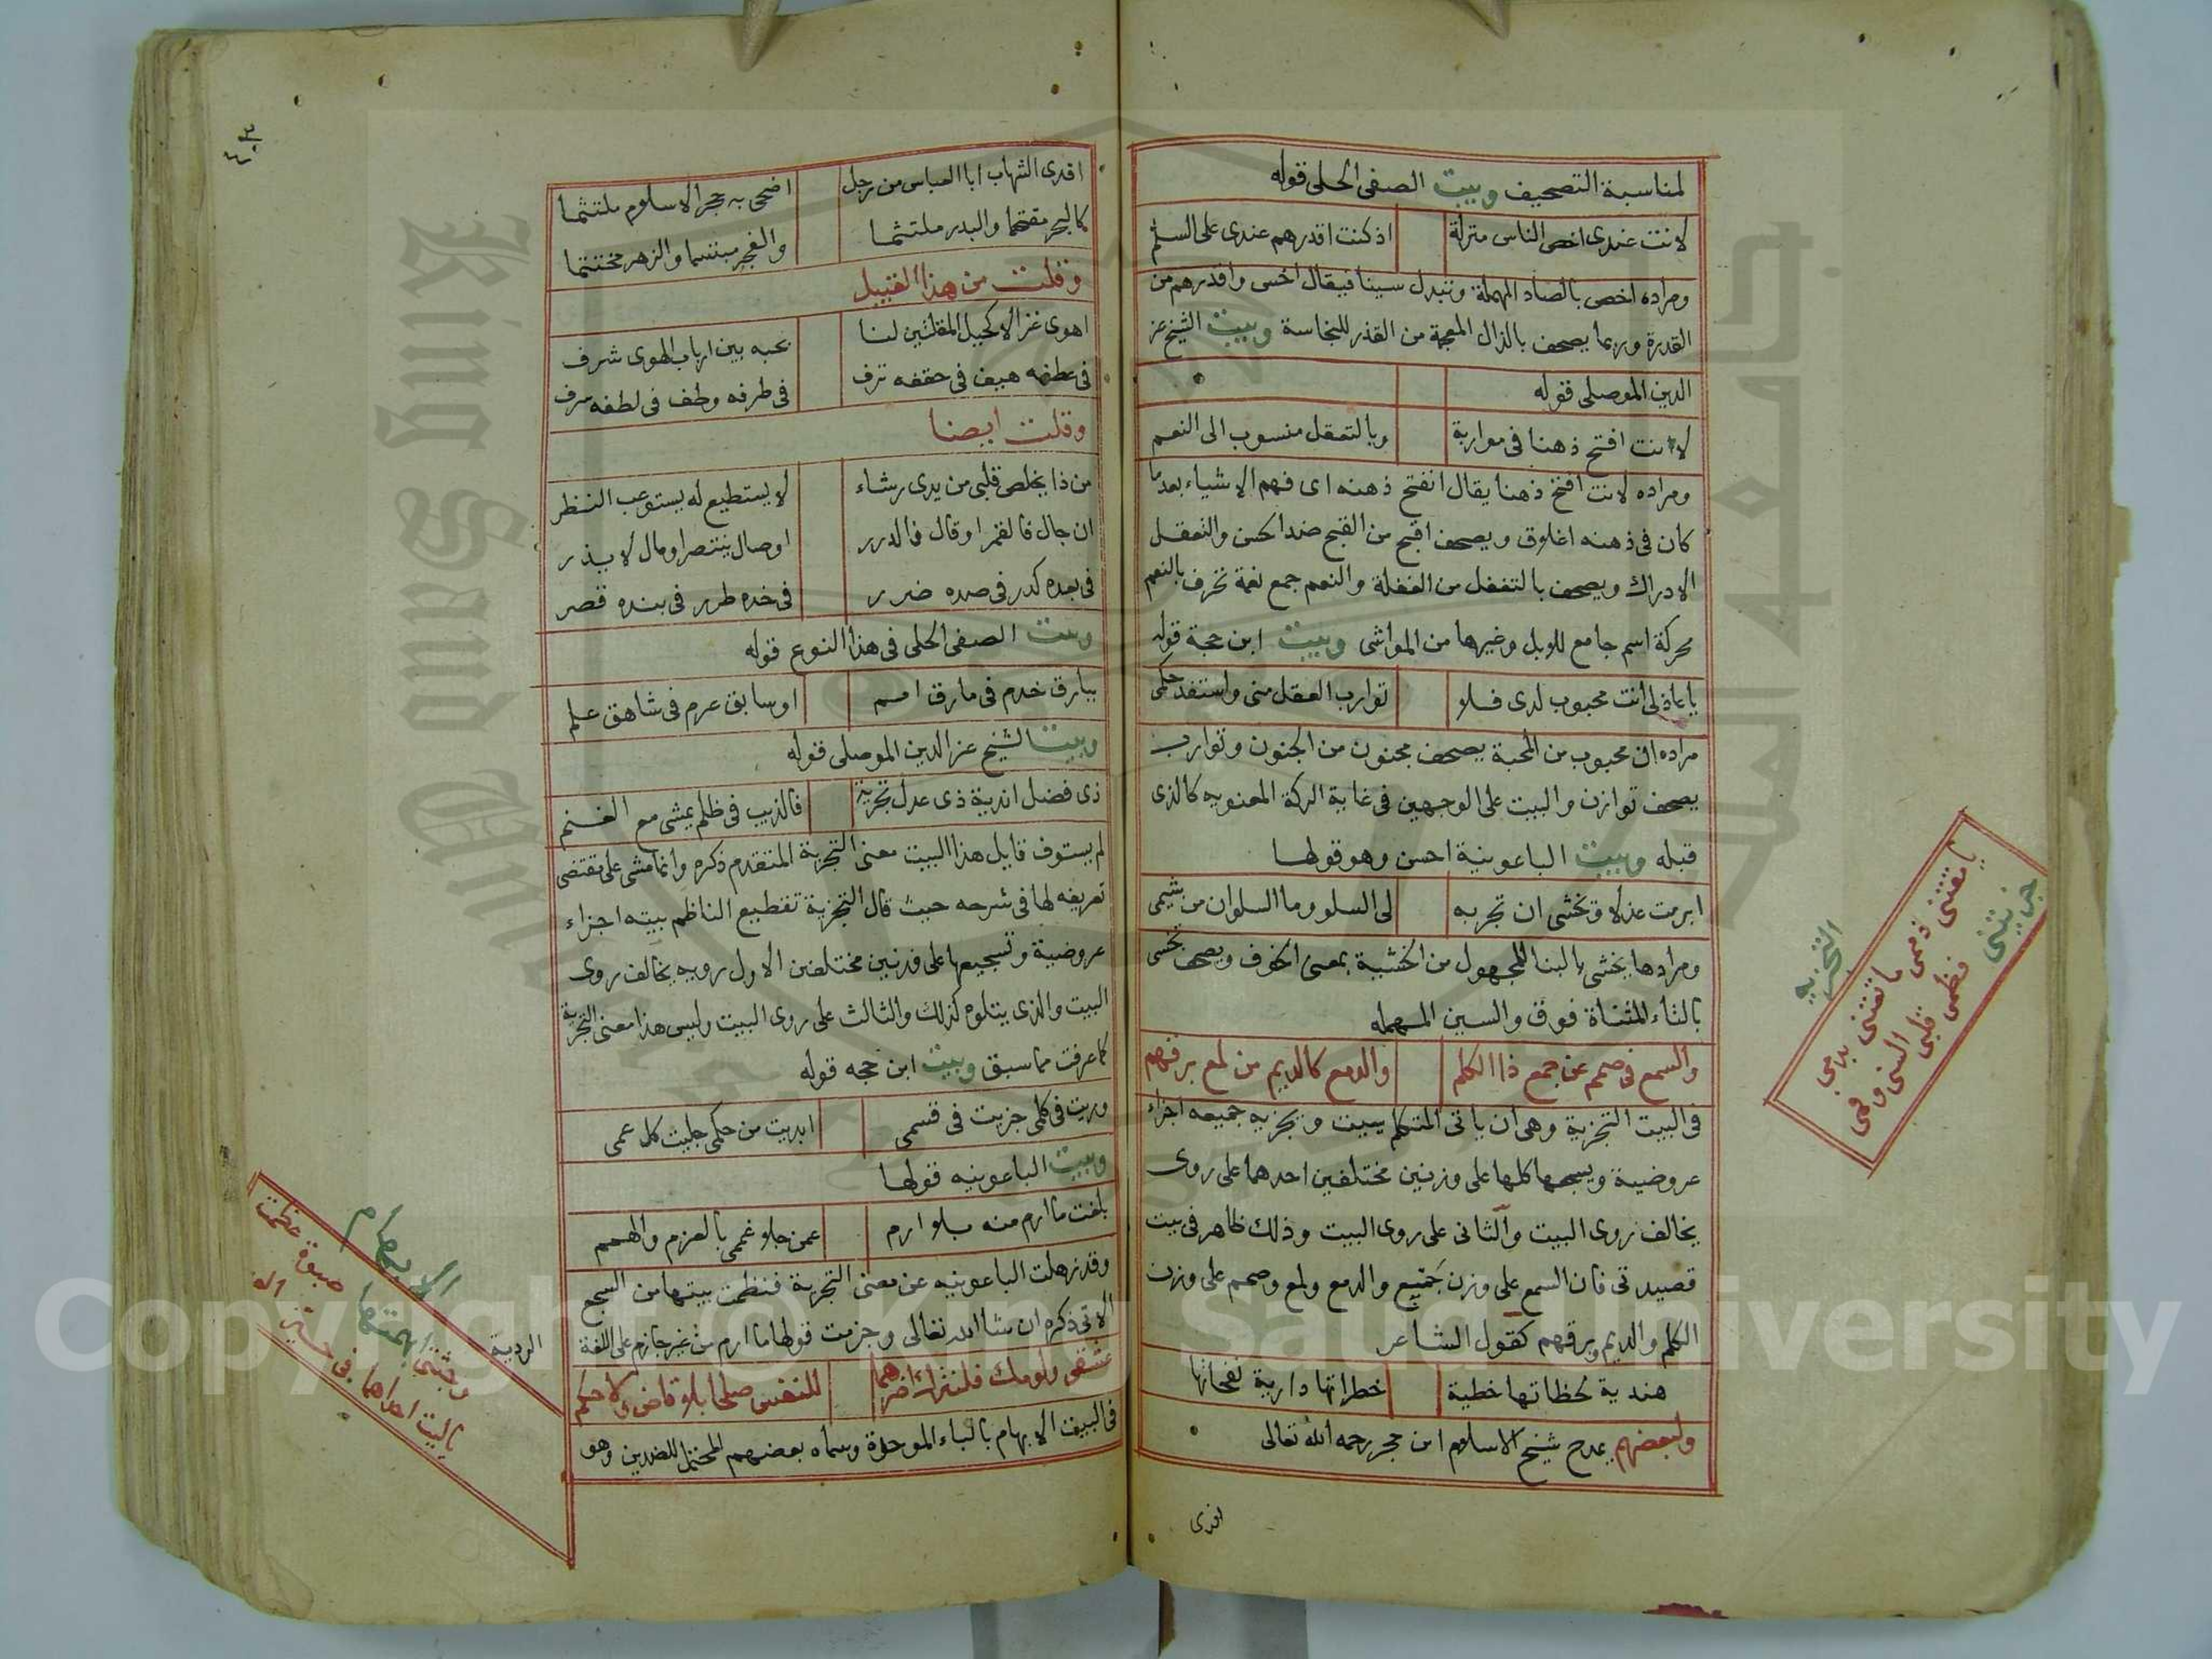 لمناسبة التصحيف وبيت الصفى الحلى قوله
لانت عندى اخص الناس منزلة اذ كنت اقدرهم عندى على السلم
ومراده اخص بالصاد المهملة وتبدل سينا فيقال اخس واقدرهم من
القدرة وربما يصحف بالذال المعجمة من القذر للنجاسة وبيت الشيخ عز
الدين الموصلى قوله
لانت افتح ذهنا فى مواربة وبالتعقل منسوب الى النعم
ومراده لانت افتح ذهنا يقال انفتح ذهنه اى فهم الاشياء بعد ما
كان فى ذهنه اغلاق ويصحف اقبح من القبح ضد الحسن والتعقل
الادراك ويصحف بالتغفل من الغفلة والنعم جمع نعمة تحرف بالنعم
محركة اسم جامع للابل وغيرها من المواشى وبيت ابن حجة قوله
يا عاذلى انت محبوب لدى فلا توارب العقل منى واستفد حكمى
مراده ان محبوب من المحبة يصحف مجنون من الجنون وتوارب
يصحف توازن والبيت على الوجهين فى غاية الركة المعنويه كالذى
قبله وبيت الباعونية احسن وهو قولها
ابرمت عذلا وتخشى ان تجر به لى السلو وما السلوان من شيمى
ومرادها يخشى بالبنا للمجهول من الخشية بمعنى الخوف ويصحف تخسى
بالتاء المثناة فوق والسين المهمله
والسمع فى صمم عن جمع ذا الكلم والدمع كالديم من لمع برقهم
فى البيت التجزية وهى ان ياتى المتكلم ببيت وتجزيه جميعه اجزاء
عروضية ويسجعها كلها على وزنين مختلفين احدهما على روى
يخالف روى البيت والثانى على روى البيت وذلك ظاهر فى بيت
قصيدتى فان السمع على وزن جمع والدمع ولمع وصمم على وزن
الكلم والديم وبرقهم كقول الشاعر
هندية لحظاتها خطية خطراتها دارية نفحاتها
ولبعضهم يمدح شيخ الاسلام ابن حجر رحمه الله تعالى
افدى
التجزيه
يا نقتى ذممى ما تقتنى بدمى
جزيتنى فظمى قلبى السنى وفمى
٣٠٤
افدى الشهاب ابا العباس من رجل اضحى به حجر الاسلام ملتثما
كالبحر مقتحما والبدر ملتثما والفجر مبتسما والزهر مختتما
وقلت من هذا القبيل
اهوى غزالا كحيل المقلتين لنا بحبه بين ارباب الهوى شرف
فى عطفه هيف فى حقفه ترف فى طرفه وطف فى لطفه سرف
وقلت ايضا
من ذا يخلص قلبى من يدى رشاء لا يستطيع له يستوعب النظر
ان جال فالقمر او قال فالدرر او صال ينتصر او مال لا يذر
فى بعده كدر فى صده ضرر فى خده طرر فى بنده قصر
وبيت الصفى الحلى فى هذا النوع قوله
ببارق خدم فى مارق امم او سابق عرم فى شاهق علم
وبيت الشيخ عز الدين الموصلى قوله
ذى فضل اندية ذى عدل تجزية فالذيب فى ظلم يمشى مع الغنم
لم يستوف قايل هذا البيت معنى التجزية المتقدم ذكره وانما مشى على مقتضى
تعريفه لها فى شرحه حيث قال التجزية تقطيع الناظم بيته اجزاء
عروضية وتسجيعها على مختلفين الاول رويه يخالف روى
البيت والذى يتلوه كذلك والثالث على روى البيت وليس هذا معنى التجزية
كما عرفت مما سبق وبيت ابن حجه قوله
وريت فى كلمى جزيت فى قسمى ابديت من حكمى جليت كل عمى
وبيت الباعونيه قولها
بلغت ما ارم منه بلا ارم عمن جلا غممى بالعزم والهمم
وقد ذهلت الباعونيه عن معنى التجزية فنظمت بيتها من السجع
الاتى ذكره ان شا الله تعالى وجزمت قولها ما ارم من غير جازم على اللغة
الردية
عشقى ولومك فلنترك اضرهما للنفس صلحا بلا قاض ولا حكم
فى البيت الابهام بالباء الموحدة وسماه بعضهم المحتمل للضدين وهو
الابهام
صبوة عظمت
ابهمتها
يا ليت احداهما فى
Copyright © King Saud University
King Saud University